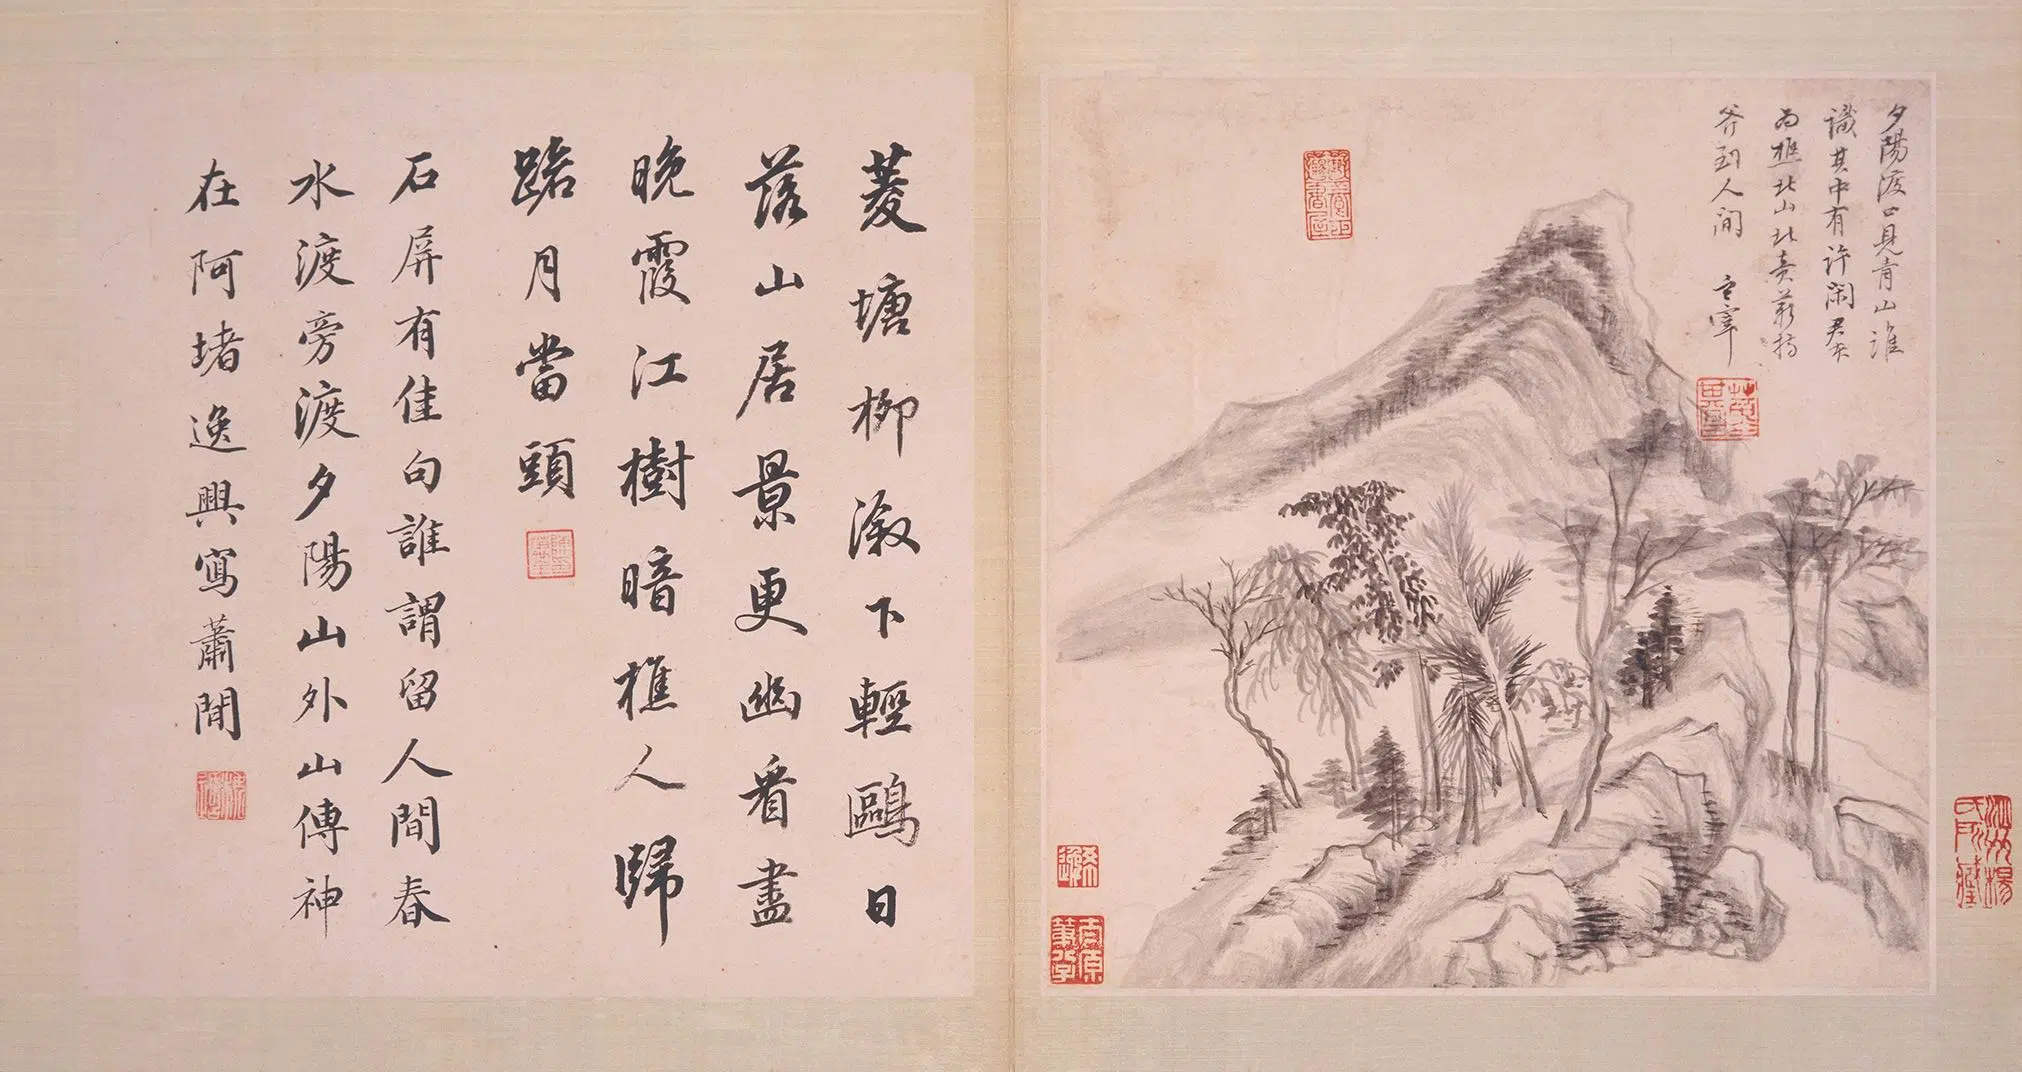 夕陽渡口見青山誰
識其中有許閑君
為樵北山北賣薪持
斧到人間 玄宰
菱塘柳溆下輕鷗日
落山居景更幽看盡
晚霞江樹暗樵人歸
踏月當頭
石屏有佳句誰謂留人間春
水渡旁渡夕陽山外山傳神
在阿堵逸興寫蕭閒